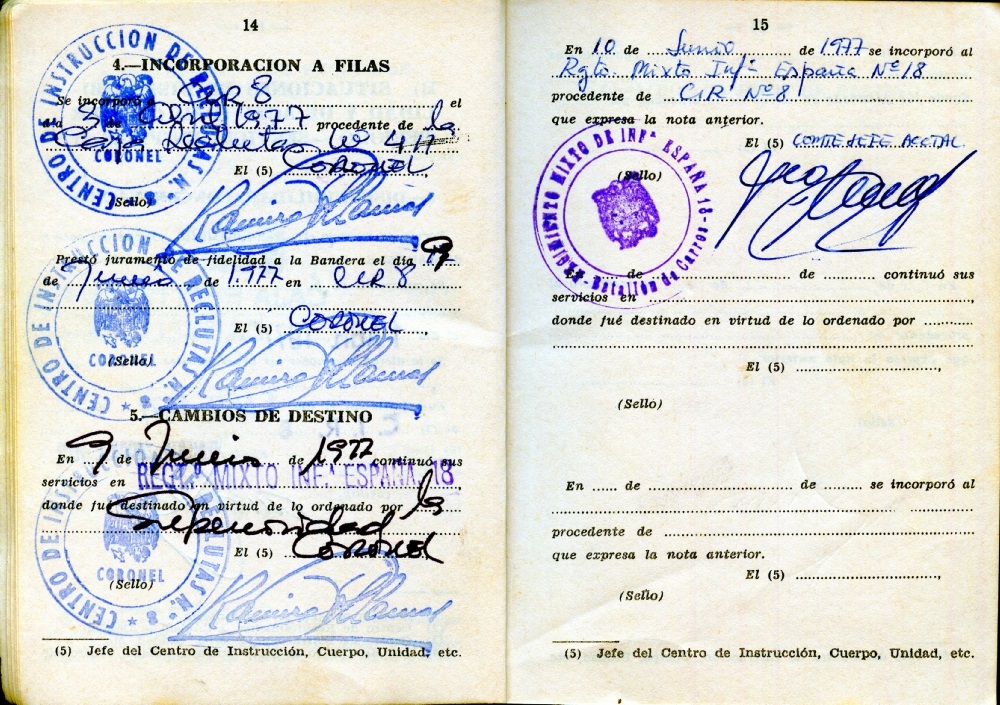 14
CENTRO DE INSTRUCCION DE RECLUTAS N.º 8
CORONEL
4.—INCORPORACION A FILAS
Se incorporó a CIR 8 el
día 3 Abril 1977 procedente de la
Caja Reclutas Nº 417
El (5) CORONEL
(Sello)
Prestó juramento de fidelidad a la Bandera el día
de Junio de 1.977 en CIR 8
El (5) CORONEL
CENTRO DE INSTRUCCION DE RECLUTAS N.º 8
CORONEL
(Sello)
5.—CAMBIOS DE DESTINO
En 9 de Junio de 1977 continuó sus
servicios en REGTº MIXTO INFª ESPAÑA, 18
donde fué destinado en virtud de lo ordenado por la
Superioridad
El (5) CORONEL
CENTRO DE INSTRUCCION DE RECLUTAS N.º 8
CORONEL
(Sello)
(5) Jefe del Centro de Instrucción, Cuerpo, Unidad, etc.
15
En 10 de Junio de 1977 se incorporó al
Rgto. Mixto Infª España Nº 18
procedente de CIR Nº 8
que expresa la nota anterior.
El (5) COMTE JEFE ACCTAL.
(Sello)
REGIMIENTO MIXTO DE INFª ESPAÑA 18
-Batallón de Carros-
En de de continuó sus
servicios en
donde fué destinado en virtud de lo ordenado por
El (5)
(Sello)
En de de se incorporó al
procedente de
que expresa la nota anterior.
El (5)
(Sello)
(5) Jefe del Centro de Instrucción, Cuerpo, Unidad, etc.